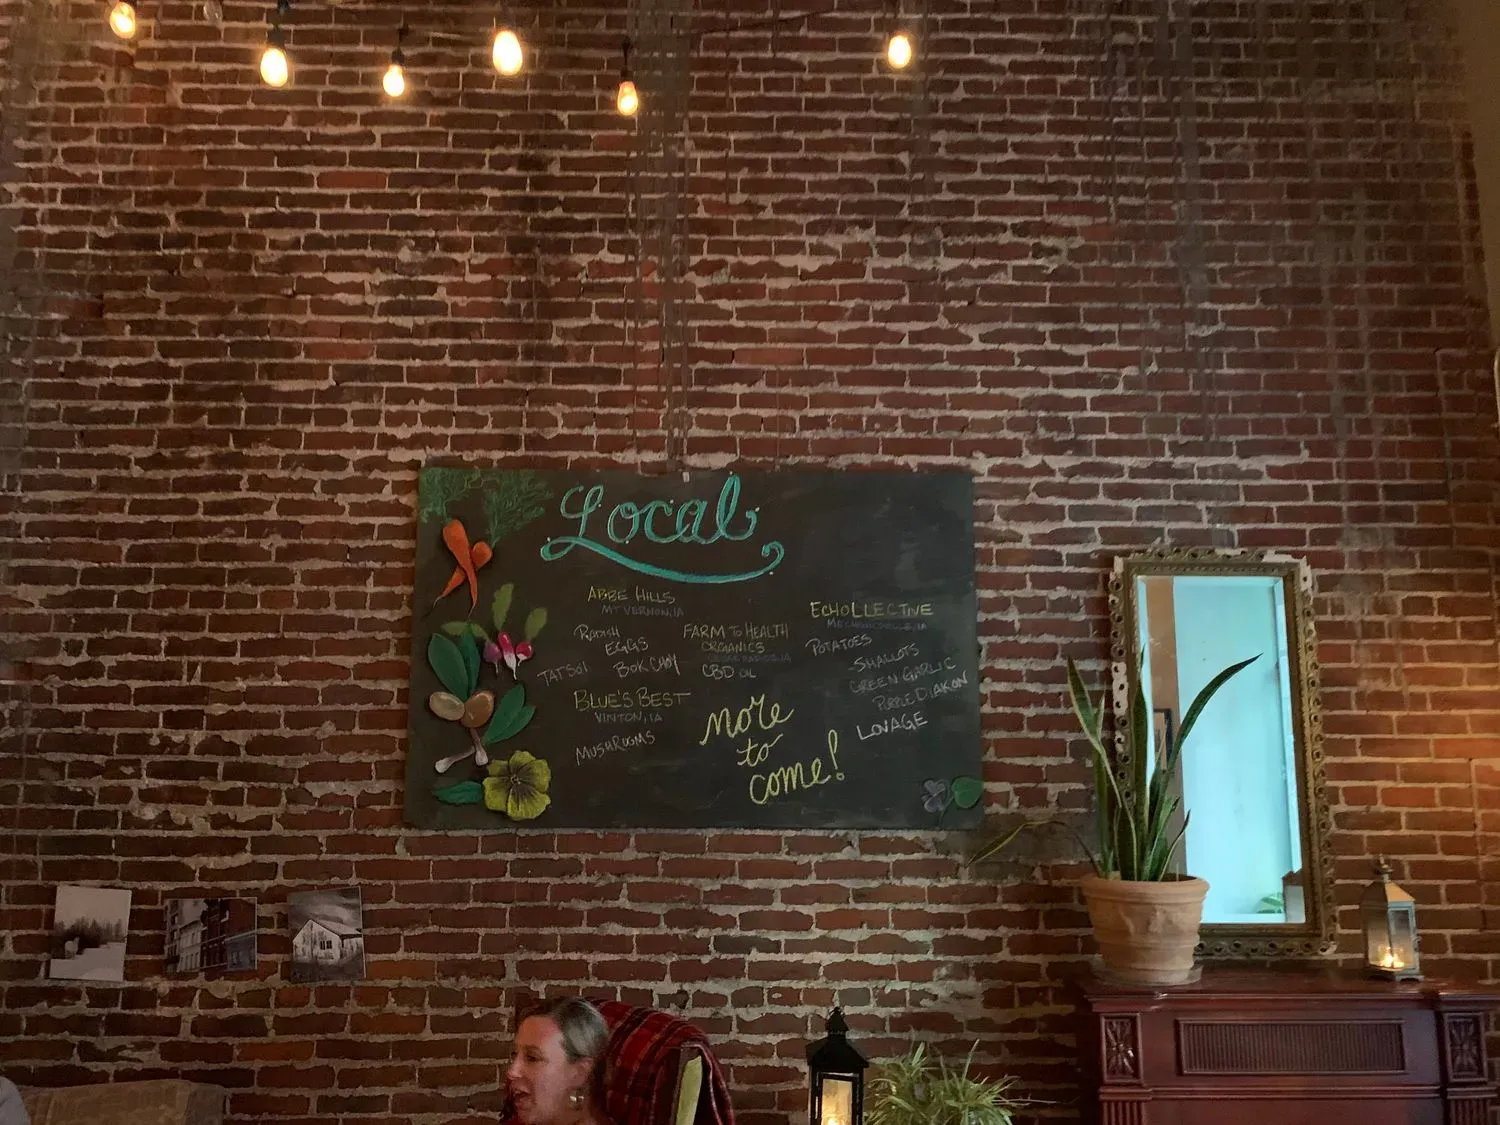 Local
ABBE HILLS
MT VERNON, IA
RADISH
EGGS
TATSOI
BOK CHOY
BLUE'S BEST
VINTON, IA
MUSHROOMS
FARM TO HEALTH
ORGANICS
CBD OIL
more
to
come!
ECHOLLECTIVE
MECHANICSVILLE, IA
POTATOES
SHALLOTS
GREEN GARLIC
PURPLE DIAKON
LOVAGE